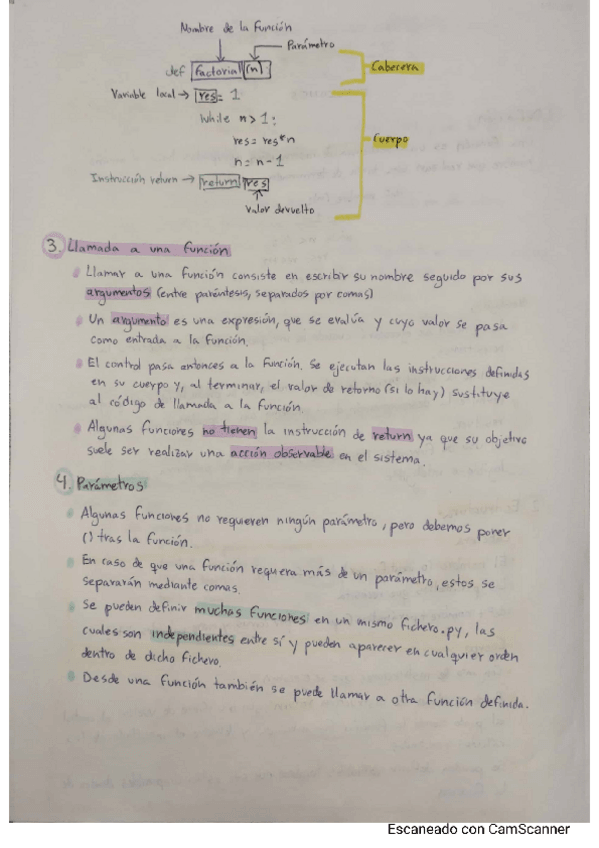 Nombre de la Función
Parámetro
def Factorial (n)
Cabecera
Variable local → res = 1
while n > 1:
res = res*n
Cuerpo
n = n - 1
Instrucción return → return res
Valor devuelto
3. Llamada a una función
Llamar a una función consiste en escribir su nombre seguido por sus
argumentos (entre paréntesis, separados por comas)
Un argumento es una expresión, que se evalúa y cuyo valor se pasa
como entrada a la función.
El control pasa entonces a la función. Se ejecutan las instrucciones definidas
en su cuerpo y, al terminar, el valor de retorno (si lo hay) sustituye
al código de llamada a la función.
Algunas funciones no tienen la instrucción de return ya que su objetivo
suele ser realizar una acción observable en el sistema.
4. Parámetros
Algunas funciones no requieren ningún parámetro, pero debemos poner
() tras la función.
En caso de que una función requera más de un parámetro, estos se
separarán mediante comas.
Se pueden definir muchas funciones en un mismo fichero.py, las
cuales son independientes entre sí y pueden aparecer en cualquier orden
dentro de dicho fichero.
Desde una función también se puede llamar a otra función definida.
Escaneado con CamScanner